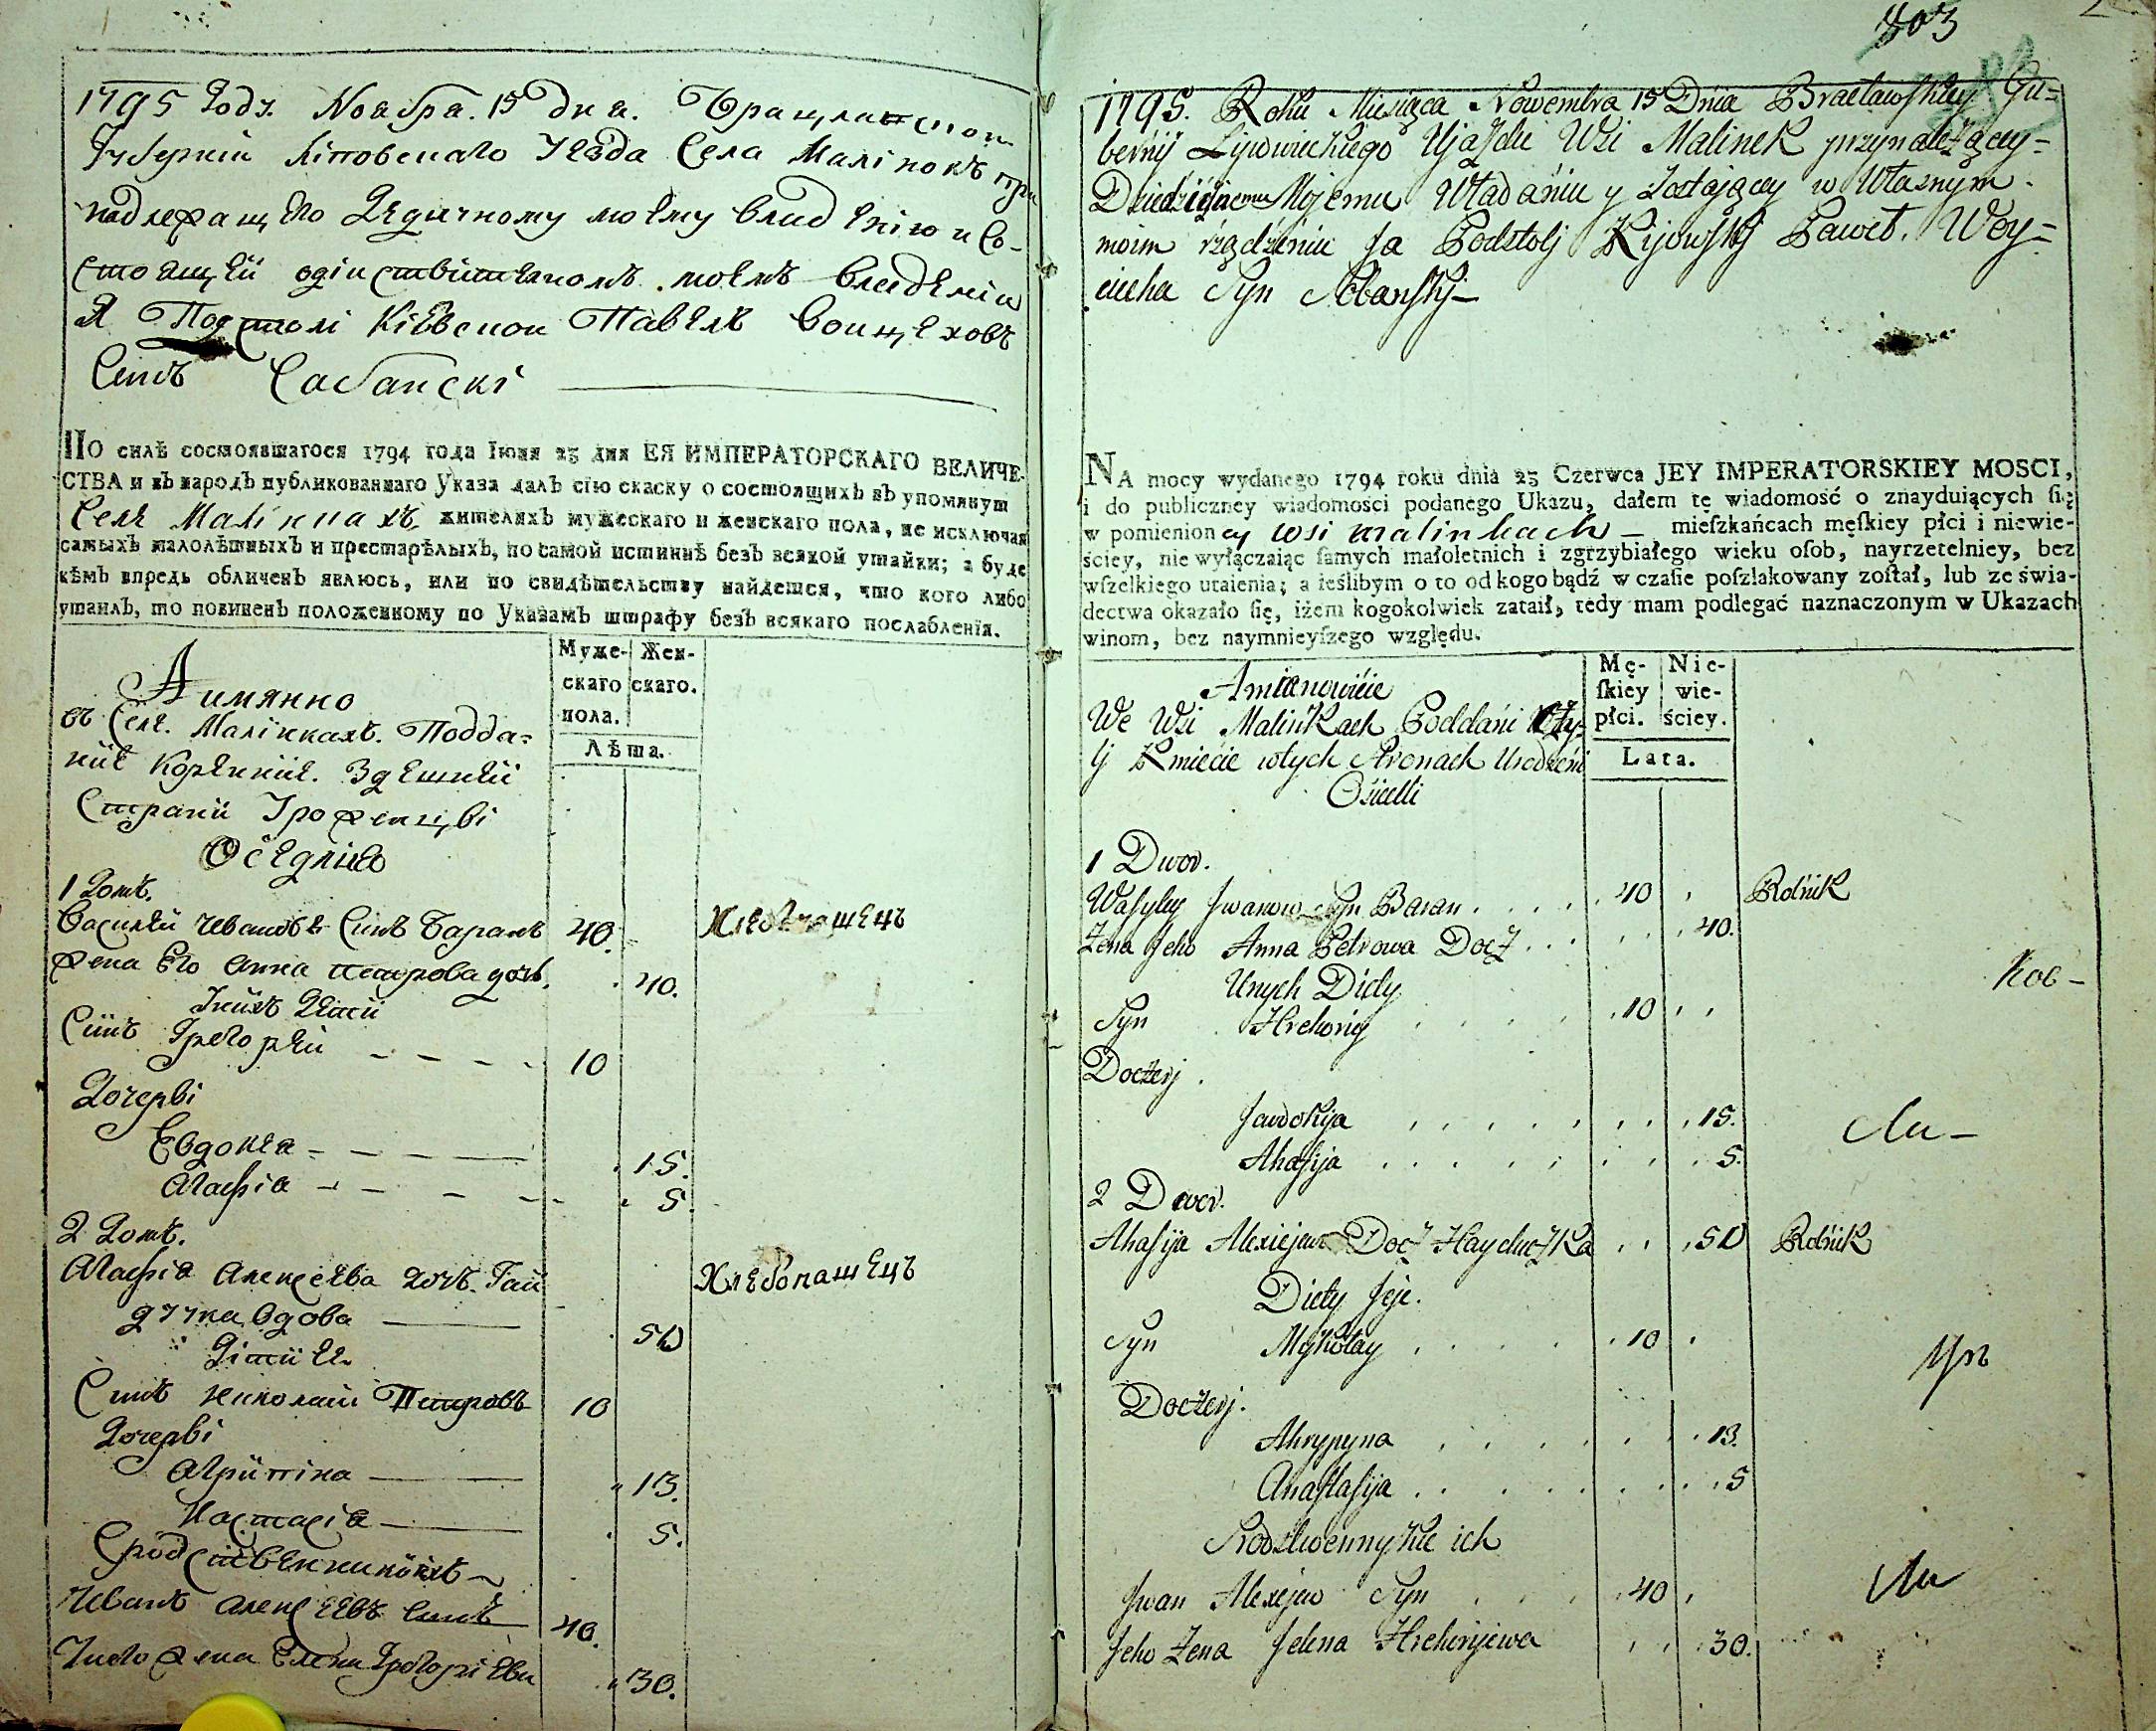 1795 Году. Ноября. 15 Дня. Брацлавской
Губерніи Ліповецкаго Уезда Села Малінокъ при
надлежащего Дедичному моему владенію и со-
стоящей одінственномъ моемъ владеніи
Я Подстолі Кіевской Павелъ Воицеховъ
Синъ Сабанскі
ПО силѣ состоявшагося 1794 года Іюня 23 дня ЕЯ ИМПЕРАТОРСКАГО ВЕЛИЧЕ-
СТВА и въ народъ публикованнаго Указа далъ сію скаску о состоящихъ въ упомянут
Селе Малінкахъ жителяхъ мужескаго и женскаго пола, не исключая
самыхъ малолѣтныхъ и престарѣлыхъ, по самой истиннѣ безъ всякой утайки; а буде
кѣмъ впредь обличенъ явлюсь, или по свидѣтельству найдется, что кого либо
утаилъ, то повиненъ положенному по Указамъ штрафу безъ всякаго послабленія.
Муже-скаго пола. Жен-скаго.
Лѣта.
А имянно
въ Селе. Малінкахъ. Подда-
ніе Кореніие. Здешней
Страни Урожеицві
Оседліе
1 Домъ.
Василей Ивановъ Синъ Баранъ 40. Хлебопашецъ
жена Его Анна петрова дочь. 40.
Унихъ Дети
Синъ Грегорей 10
Дочерві
Евдокея 15.
Агафія 5.
2 Домъ.
Агафія Алексеева дочь. Гай Хлебопашецъ
дучка вдова 50
Діти Ее
Синъ Николаи Петровъ 10
Дочерві
Агрипіна 13.
Настасія 5.
Сродственниковъ
Иванъ Алексеевъ синъ 40.
Унего жена Елена Грегоріева 30.
803
1795. Roku Miesiąca Nowembra 15 Dnia Bracławskiey Gu=
bernij Lipowieckiego Ujazdu Wsi Malinek przynależącey=
Dziedzicznemu Mojemu Władaniu y Zostającey w Własnym
moim rządzeniu Ja Podstolj Kijowskj Paweł. Woy=
ciecha Syn Sobanskj
NA mocy wydanego 1794 roku dnia 23 Czerwca JEY IMPERATORSKIEY MOSCI,
i do publiczney wiadomości podanego Ukazu, dałem tę wiadomość o znayduiących ſię
w pomienion ey wsi malinkach mieſzkańcach męſkiey płci i niewie-
ściey, nie wyłączaiąc ſamych małoletnich i zgrzybiałego wieku oſob, nayrzetelniey, bez
wſzelkiego utaienia; a ieślibym o to od kogo bądź w czaſie poſzlakowany zoſtał, lub ze świa-
dectwa okazało ſię, iżem kogokolwiek zataił, tedy mam podlegać naznaczonym w Ukazach
winom, bez naymnieyſzego względu.
Mę-ſkiey płci. Nie-wie-ściey.
Lata.
Amianowicie
We Wsi Malinkach Poddani
lj Kmiecie wtych Stronach Urodzeni
Osiedli
1 Dwor.
Wasyley Jwanow Syn Baran 40 Rolnik
Żena Jeho Anna Petrowa Docz 40.
Unych Didy
Syn Hrehorij 10
Doczerj
Jawdokija 15.
Ahafija 5.
2 Dwor.
Ahafija Alexiejewa Docz Hayduczka 50 Rolnik
Diety Jeje.
Syn Mykołay 10
Doczerj.
Ahrypyna 13.
Anastasija 5
Srodstwennykie ich
Jwan Alexejew Syn 40
Jeho Żena Jelena Hrehorijewa 30.